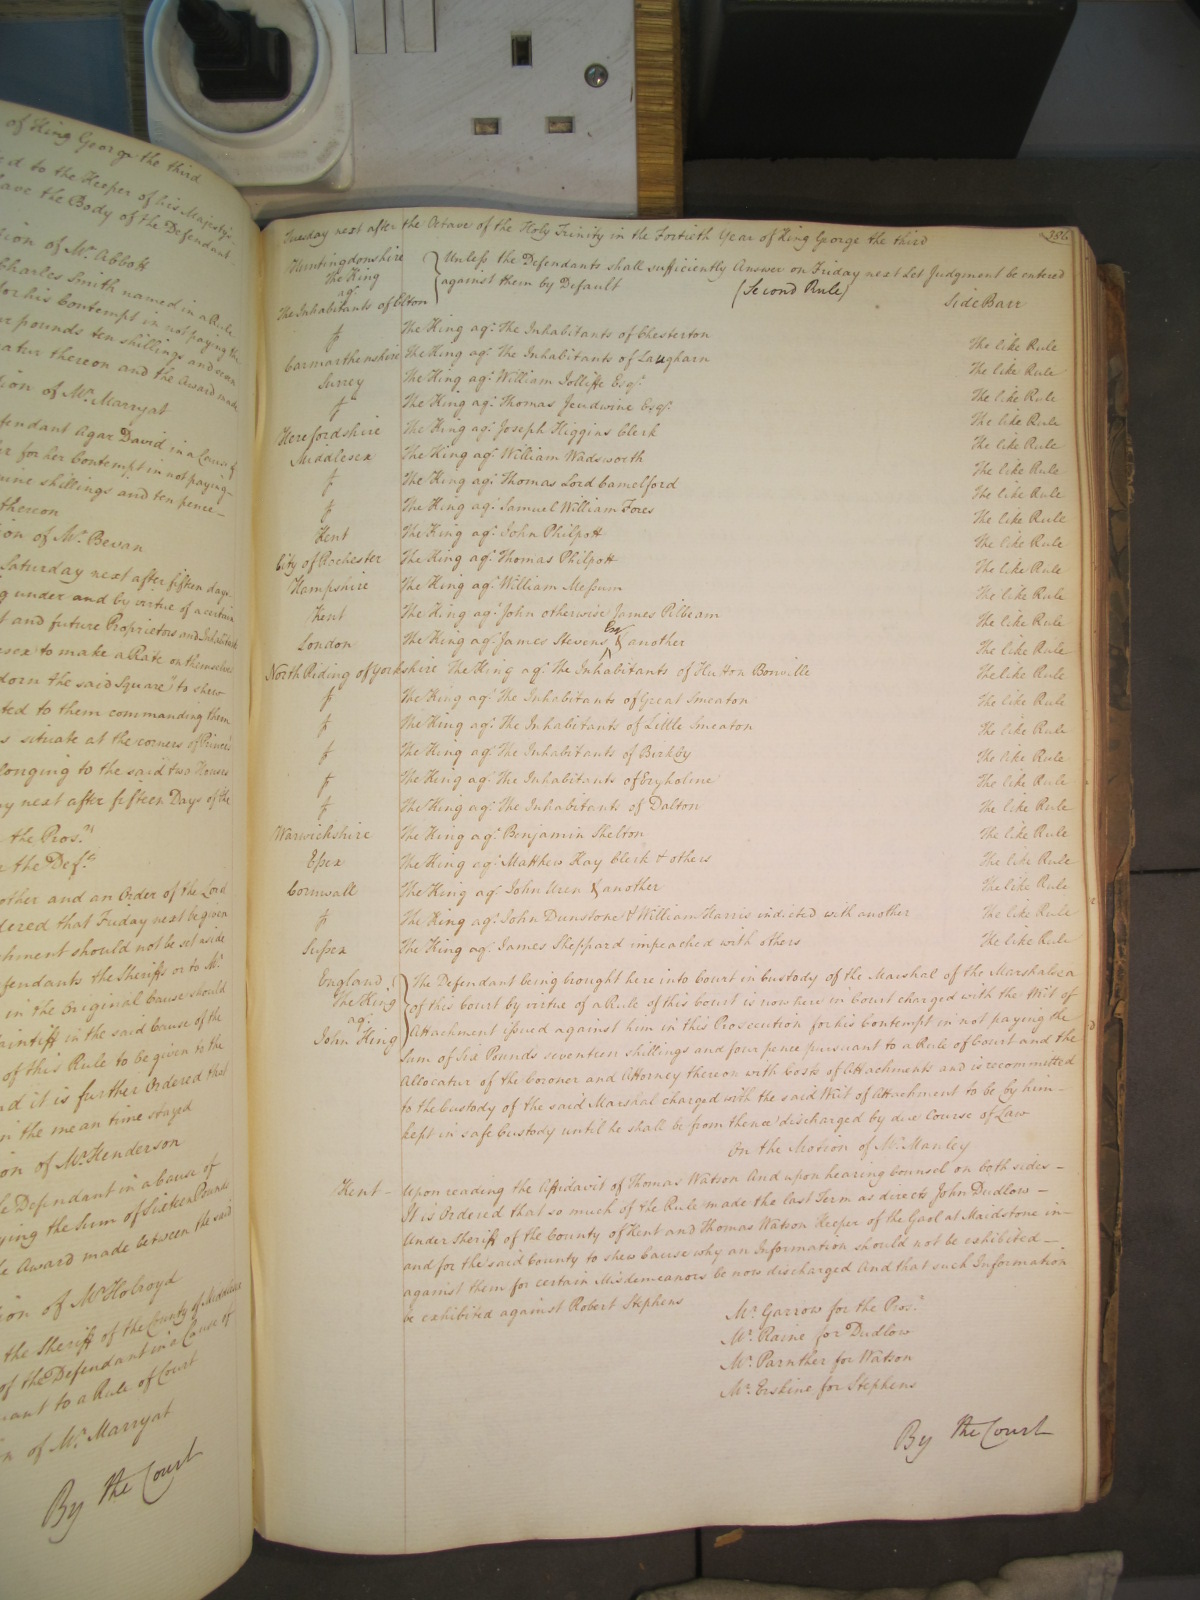 of King George the third
d to the Keeper of his Majesty's
have the Body of the Defendant
ion of Mr. Abbott
Charles Smith named in a Rule
for his Contempt in not paying the
pounds ten shillings and seven
atur thereon and the Award made
ion of Mr. Marryat
fendant Agar David in a Cause of
r for her Contempt in not paying
nine shillings and ten pence
thereon
ion of Mr. Bevan
Saturday next after fifteen days
g under and by virtue of a certain
t and future Proprietors and Inhabitants
sex to make a Rate on themselves
dorn the said Square" to shew
ted to them commanding them
s situate at the corners of Princes
longing to the said two Houses
ay next after fifteen Days of the
the Pros.r
r the Def.ts
other and an Order of the Lord
dered that Friday next be given
chment should not be set aside
fendants the Sheriffs or to Mr.
in the original Cause should
aintiff in the said Cause of the
of this Rule to be given to the
nd it is further Ordered that
in the mean time stayed
on of Mr. Henderson
e Defendant in a Cause of
ying the Sum of Sixteen Pounds
e Award made between the said
ion of Mr. Holroyd
the Sheriff of the County of Middlesex
of the Defendant in a Cause of
uant to a Rule of Court
n of Mr. Marryat
By the Court
386
Tuesday next after the Octave of the Holy Trinity in the Fortieth Year of King George the third
Huntingdonshire
The King
ag.t
The Inhabitants of Elton
Unless the Defendants shall sufficiently Answer on Friday next Let Judgment be entered
against them by Default (Second Rule) Side Barr
ſ The King ag.t The Inhabitants of Chesterton The like Rule
Carmarthenshire The King ag.t The Inhabitants of Laugharn The like Rule
Surrey The King ag.t William Jolliffe Esq.r The like Rule
ſ The King ag.t Thomas Jeudwine Esq.r The like Rule
Herefordshire The King ag.t Joseph Higgins Clerk The like Rule
Middlesex The King ag.t William Wadsworth The like Rule
ſ The King ag.t Thomas Lord Camelford The like Rule
ſ The King ag.t Samuel William Fores The like Rule
Kent The King ag.t John Philpott The like Rule
City of Rochester The King ag.t Thomas Philpott The like Rule
Hampshire The King ag.t William Messum The like Rule
Kent The King ag.t John otherwise James Pilbeam The like Rule
London The King ag.t James Stevens Esq.r & another The like Rule
North Riding of Yorkshire The King ag.t The Inhabitants of Hutton Bonville The like Rule
ſ The King ag.t The Inhabitants of Great Smeaton The like Rule
ſ The King ag.t The Inhabitants of Little Smeaton The like Rule
ſ The King ag.t The Inhabitants of Birkby The like Rule
ſ The King ag.t The Inhabitants of Eryholme The like Rule
ſ The King ag.t The Inhabitants of Dalton The like Rule
Warwickshire The King ag.t Benjamin Shelton The like Rule
Essex The King ag.t Matthew Kay Clerk & others The like Rule
Cornwall The King ag.t John Uren & another The like Rule
ſ The King ag.t John Dunstone & William Harris indicted with another The like Rule
Sussex The King ag.t James Sheppard impeached with others The like Rule
England
The King
ag.t
John King
The Defendant being brought here into Court in Custody of the Marshal of the Marshalsea
of this Court by virtue of a Rule of this Court is now here in Court charged with the Writ of
Attachment issued against him in this Prosecution for his Contempt in not paying the
Sum of Six Pounds seventeen shillings and four pence pursuant to a Rule of Court and the
Allocatur of the Coroner and Attorney thereon with Costs of Attachments and is recommitted
to the Custody of the said Marshal charged with the said Writ of Attachment to be by him
kept in safe Custody until he shall be from thence discharged by due Course of Law
On the Motion of Mr. Manley
Kent Upon reading the Affidavit of Thomas Watson And upon hearing Counsel on both sides
It is Ordered that so much of the Rule made the last Term as directs John Dudlow
Under Sheriff of the County of Kent and Thomas Watson Keeper of the Gaol at Maidstone in
and for the said County to shew Cause why an Information should not be exhibited
against them for certain Misdemeanors be now discharged And that such Information
be exhibited against Robert Stephens
Mr. Garrow for the Pros.r
Mr. Raine for Dudlow
Mr. Parnther for Watson
Mr. Erskine for Stephens
By the Court